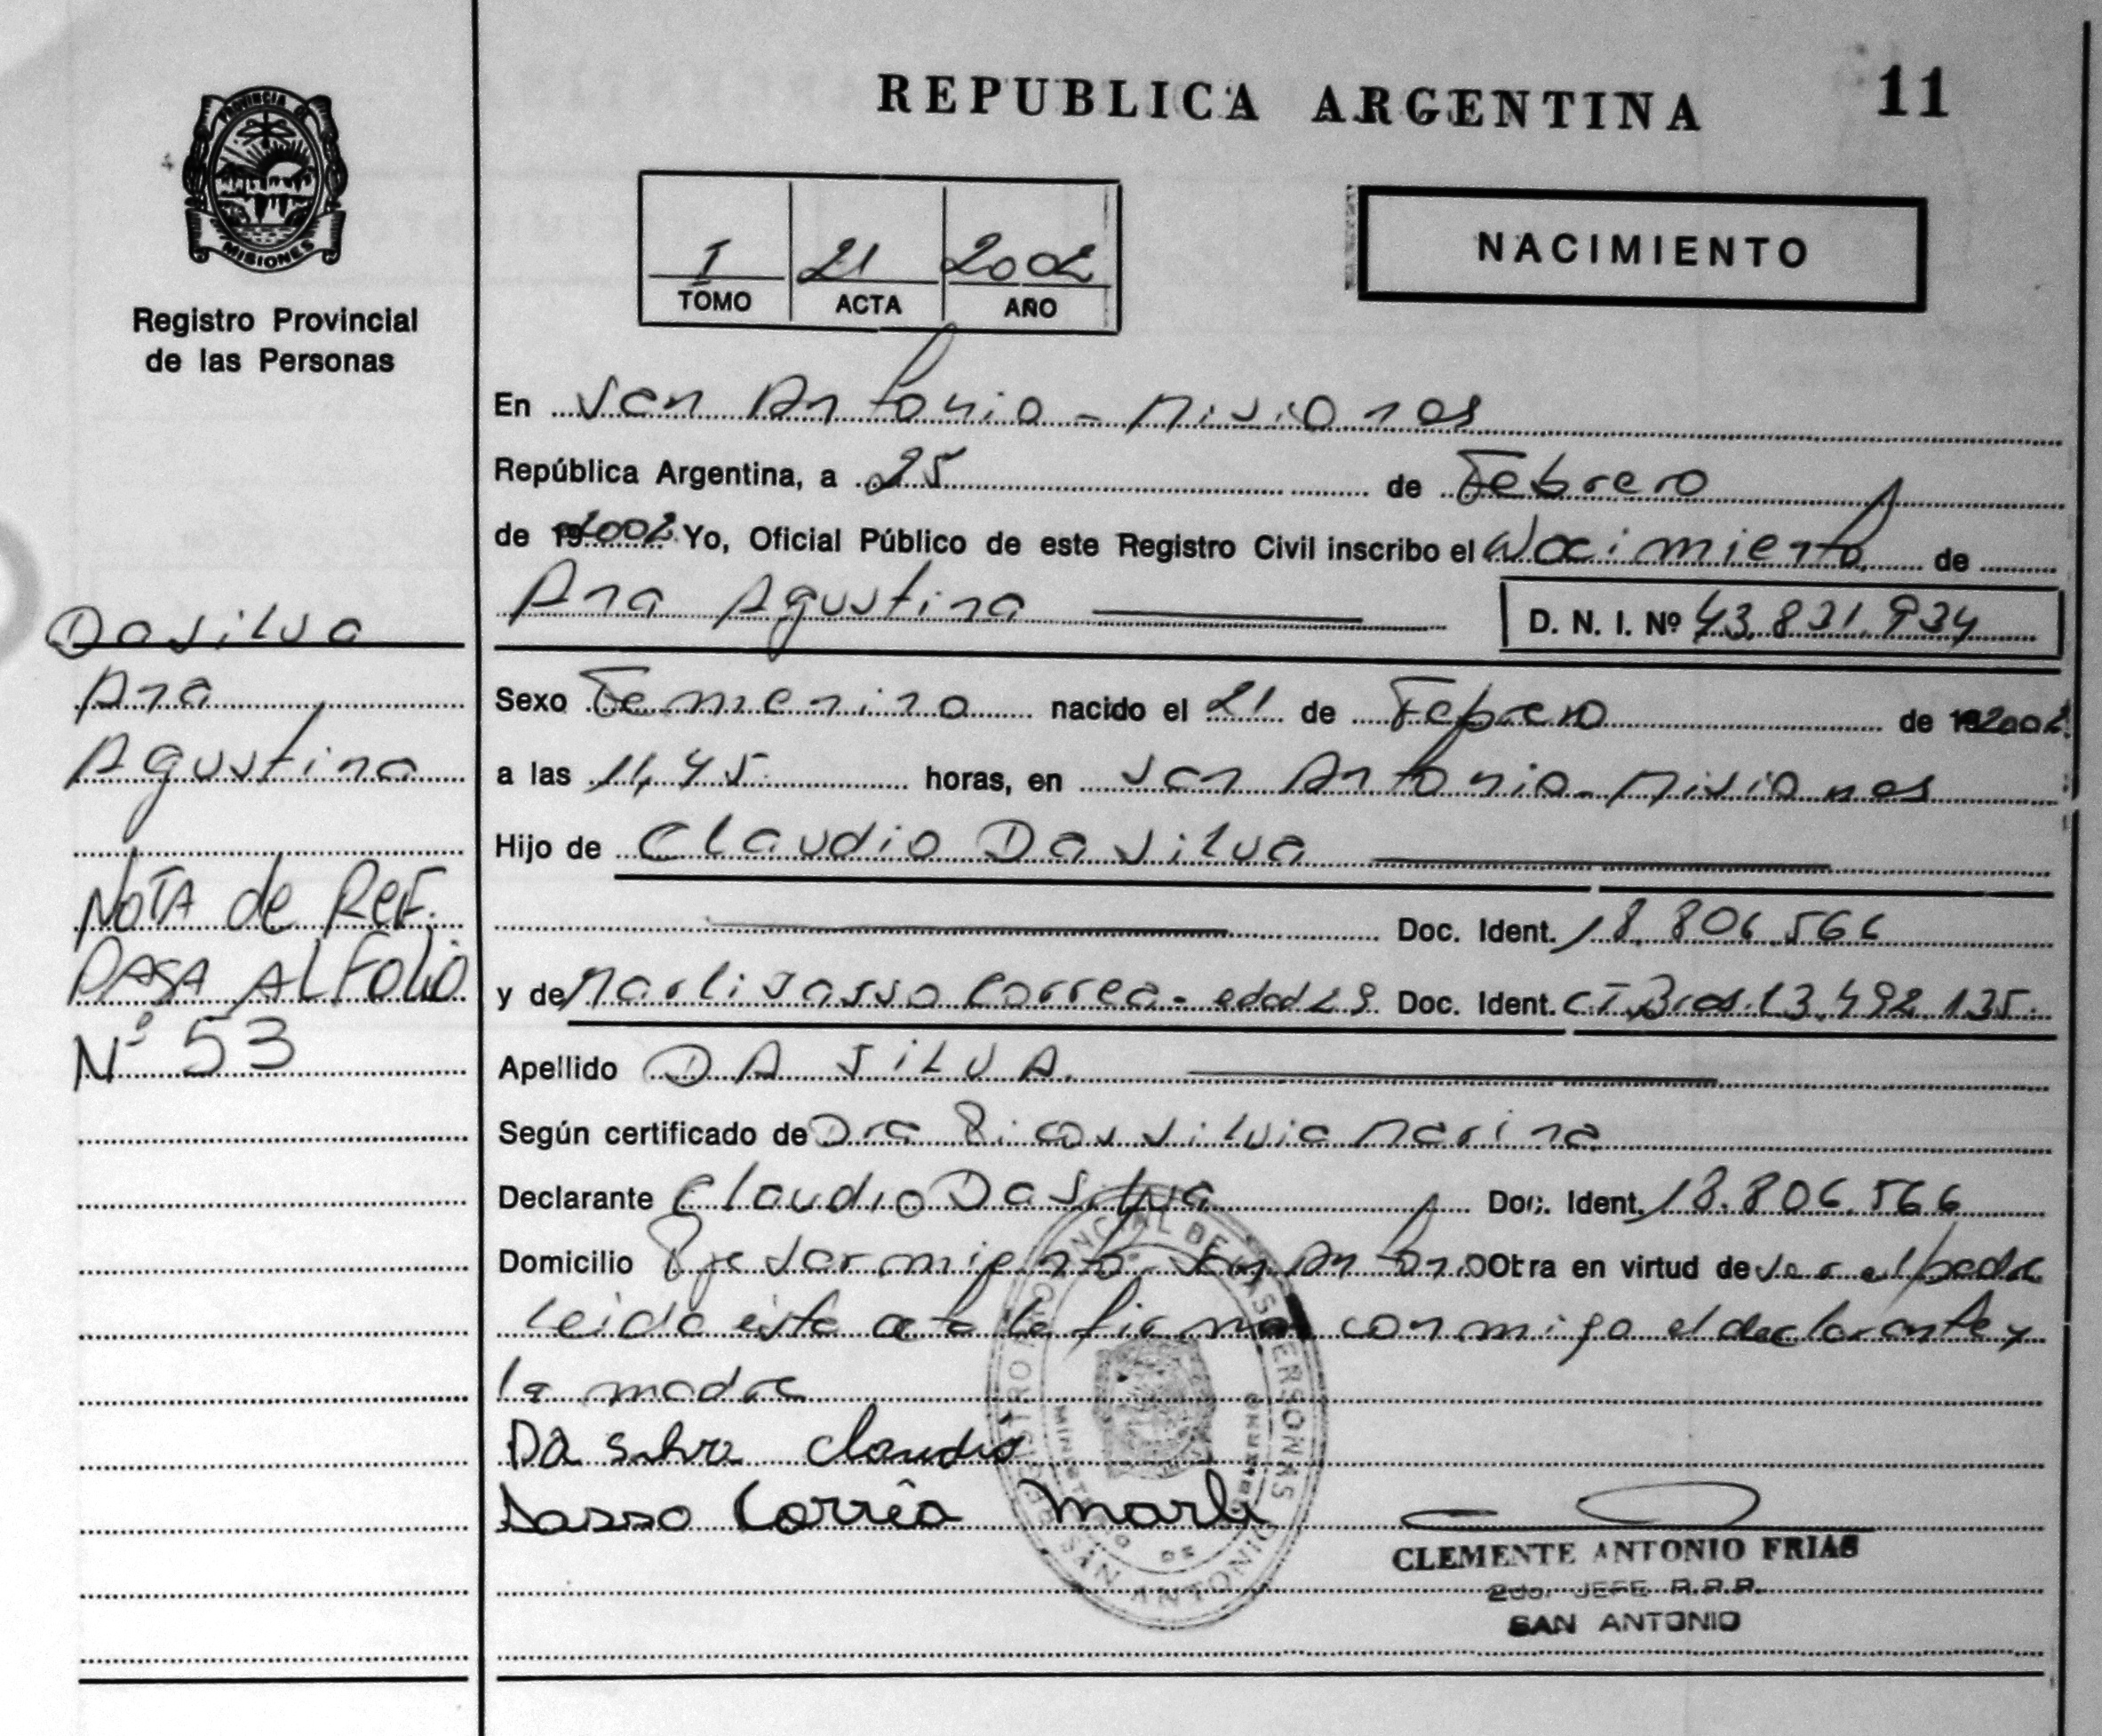 REPUBLICA ARGENTINA 11
PROVINCIA DE
MISIONES
Registro Provincial
de las Personas
I 21 2002
TOMO ACTA AÑO
NACIMIENTO
En San Antonio - Misiones
República Argentina, a 25 de Febrero
de 2002 Yo, Oficial Público de este Registro Civil inscribo el Nacimiento de
Ana Agustina D. N. I. Nº 43.831.934
Da Silva
Ana
Agustina
NOTA de Ref.
PASA AL FOLIO
Nº 53
Sexo Femenino nacido el 21 de Febrero de 2002
a las 11,45 horas, en San Antonio - Misiones
Hijo de Claudio Da Silva
Doc. Ident. 18.806.566
y de Marli Sasso Correa - edad 29 Doc. Ident. C.I. Bras. 13.492.135.
Apellido DA SILVA.
Según certificado de Dra Silvia Marina
Declarante Claudio Da Silva Doc. Ident. 18.806.566
Domicilio San Antonio Otra en virtud de ser el padre
Leida esta acta la firma conmigo el declarante y
la madre
Da Silva Claudio
Sasso Corrêa Marli
REGISTRO PROVINCIAL DE LAS PERSONAS
MINISTERIO DE GOBIERNO
SAN ANTONIO
CLEMENTE ANTONIO FRIAS
2do. JEFE R.P.P.
SAN ANTONIO